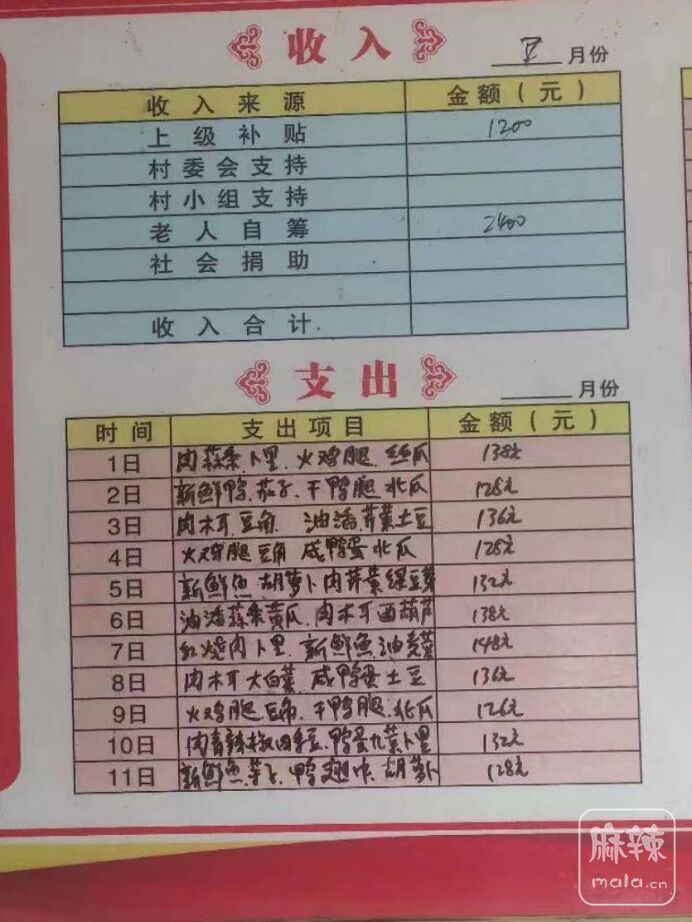 收入 五 月份
收入来源 金额(元)
上级补贴 1200
村委会支持
村小组支持
老人自筹 2400
社会捐助
收入合计.
支出 月份
时间 支出项目 金额(元)
1日 肉蒜条卜里.火鸡腿.丝瓜 138元
2日 新鲜鸭.茄子.干鸭腿北瓜 128元
3日 肉木耳.豆角 油潘芹菜土豆 136元
4日 火鸡腿豆角 咸鸭蛋北瓜 128元
5日 新鲜鱼胡萝卜肉芹菜绿豆芽 132元
6日 油潘蒜条黄瓜.肉木耳西葫芦 138元
7日 红烧肉卜里.新鲜鱼油麦菜 148元
8日 肉木耳大白菜 咸鸭蛋土豆 136元
9日 火鸡腿豆角.干鸭腿.北瓜 126元
10日 肉青辣椒四季豆.鸭蛋九菜卜里 132元
11日 新鲜鱼茄子.鸭翅中 胡萝卜 128元
麻辣
mala.cn